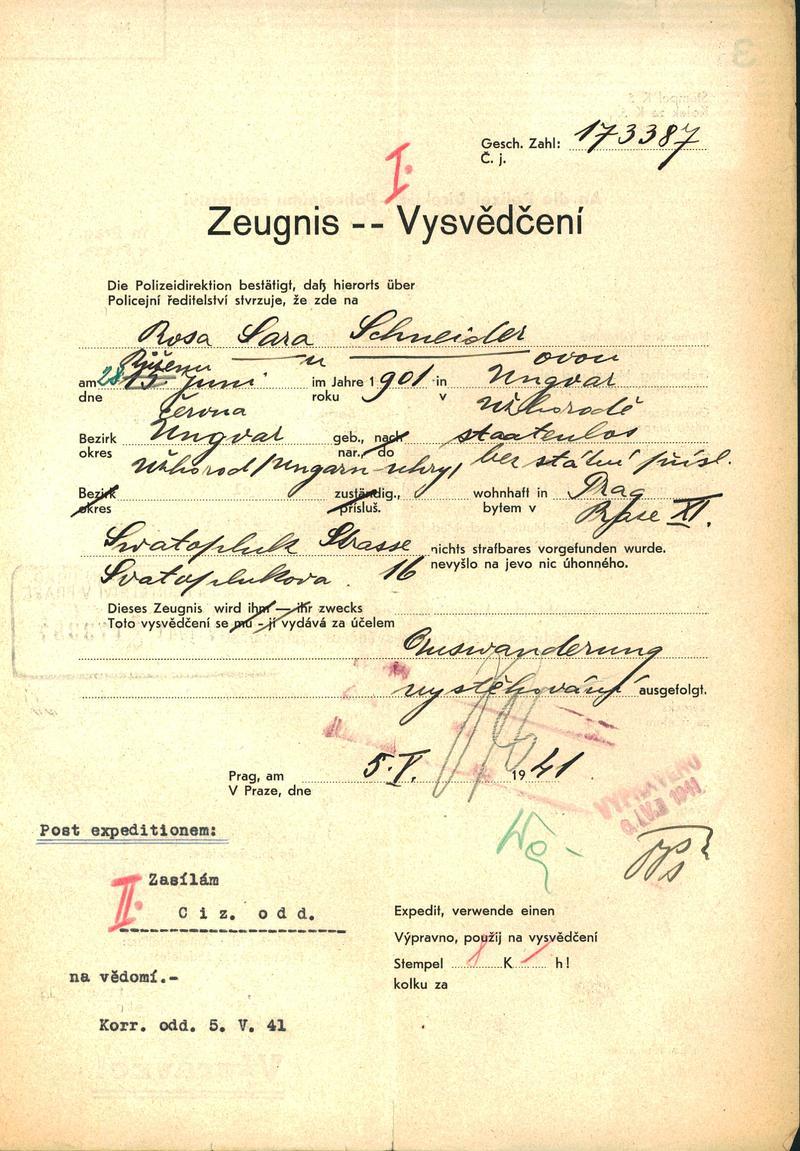 Gesch. Zahl: 173387
Č. j.
I.
Zeugnis -- Vysvědčení
Die Polizeidirektion bestätigt, daß hierorts über
Policejní ředitelství stvrzuje, že zde na
Rosa Sara Schneider
ovou
am 28 13. Juni im Jahre 1901 in Ungvar
dne června roku v Užhorodě
Bezirk Ungvar geb., nach staatenlos
okres Užhorod/Ungarn-Uhry, nar., do bez státní přísl.
Bezirk zuständig., wohnhaft in Prag
okres přísluš. bytem v Praze XI.
Swatopluk Strasse nichts strafbares vorgefunden wurde.
Svatoplukova 16 nevyšlo na jevo nic úhonného.
Dieses Zeugnis wird ihm — ihr zwecks
Toto vysvědčení se mu - jí vydává za účelem
Auswanderung
vystěhování ausgefolgt.
Prag, am 5. V. 1941
V Praze, dne
VYPRAVENO
1941
Post expeditionem:
II. Zasílám
Ciz. odd.
na vědomí.-
Korr. odd. 5. V. 41
Expedit, verwende einen
Výpravno, použij na vysvědčení
Stempel K h!
kolku za